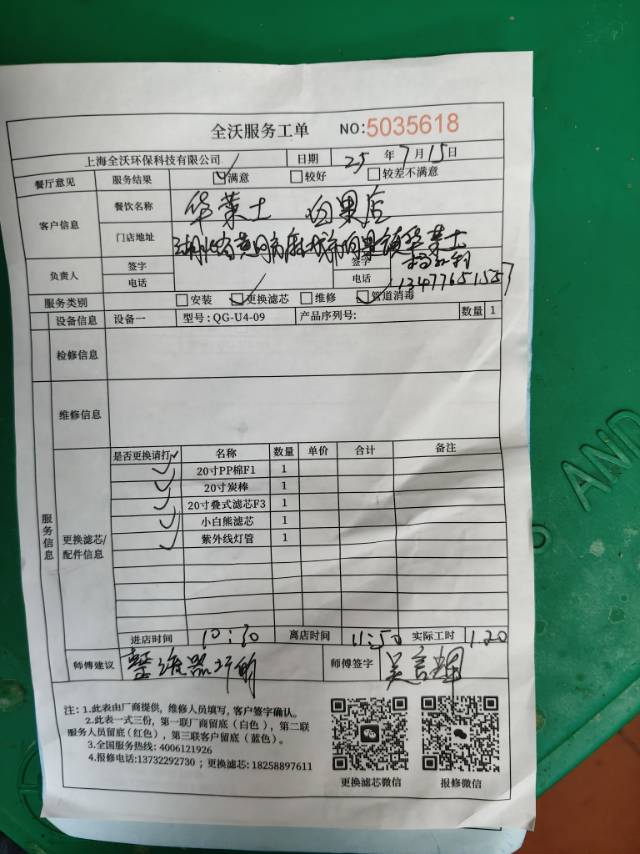 全沃服务工单 NO:5035618
上海全沃环保科技有限公司 日期 25年7月15日
餐厅意见 服务结果 满意 较好 较差不满意
客户信息 餐饮名称 华莱士 白果店
门店地址 湖北省黄冈市麻城市白果镇华莱士
负责人 签字 签字
电话 电话 13477651557
服务类别 安装 更换滤芯 维修 管道消毒
设备信息 设备一 型号: QG-U4-09 产品序列号: 数量 1
检修信息
维修信息
服务信息 更换滤芯/配件信息
是否更换请打✓ 名称 数量 单价 合计 备注
✓ 20寸PP棉F1 1
✓ 20寸炭棒 1
✓ 20寸叠式滤芯F3 1
✓ 小白熊滤芯 1
✓ 紫外线灯管 1
进店时间 10:30 离店时间 11:50 实际工时 1.20
师傅建议 师傅签字
注: 1.此表由厂商提供, 维修人员填写, 客户签字确认。
2.此表一式三份, 第一联厂商留底(白色), 第二联
服务人员留底(红色), 第三联客户留底(蓝色)。
3.全国服务热线: 4006121926
4.报修电话:13732292730 ; 更换滤芯: 18258897611
更换滤芯微信 报修微信
AND